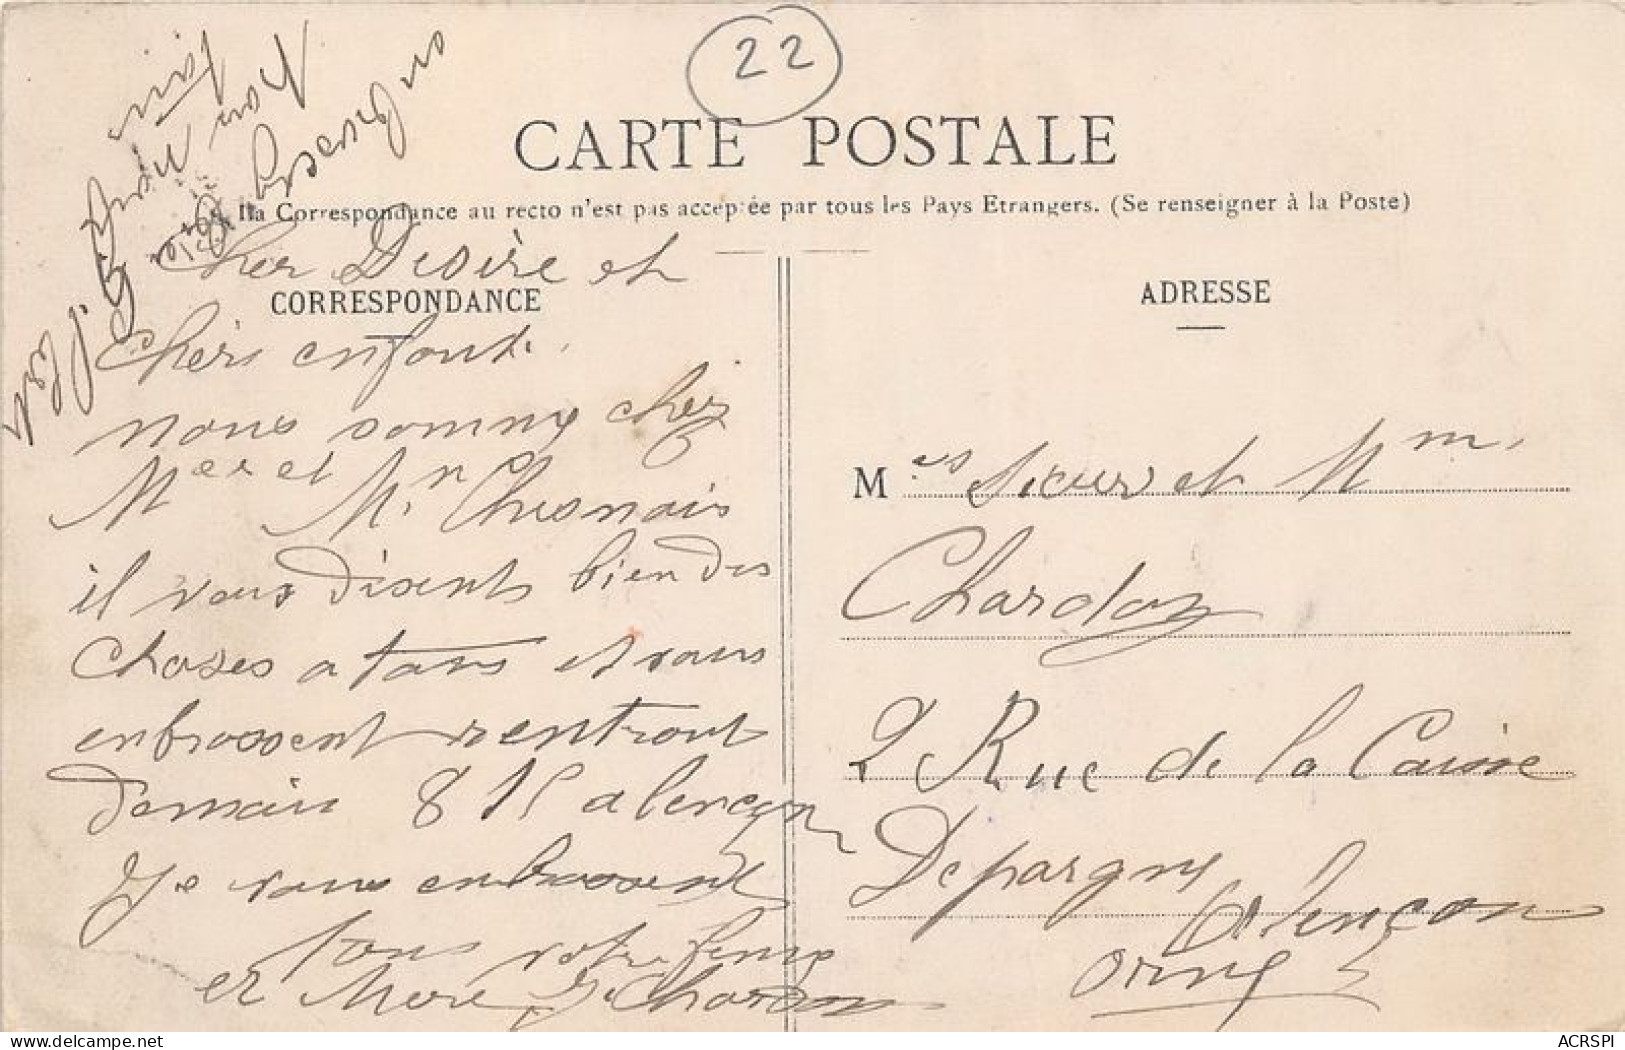 22
CARTE POSTALE
La Correspondance au recto n'est pas acceptée par tous les Pays Etrangers. (Se renseigner à la Poste)
CORRESPONDANCE
Cher Désiré et
chéris enfant.
nous somme chez
Mer et Mr Chesnais
il vous disents bien des
choses a tous et vous
enbrassent rentront
demain 8 alençon
Je vous enbrassent
tous votre feme
et Mere J. Chardon
ADRESSE
Mes sieur et Mm
Chardon
2 Rue de la Caisse
Depargne
alençon
orne
ACRSPI